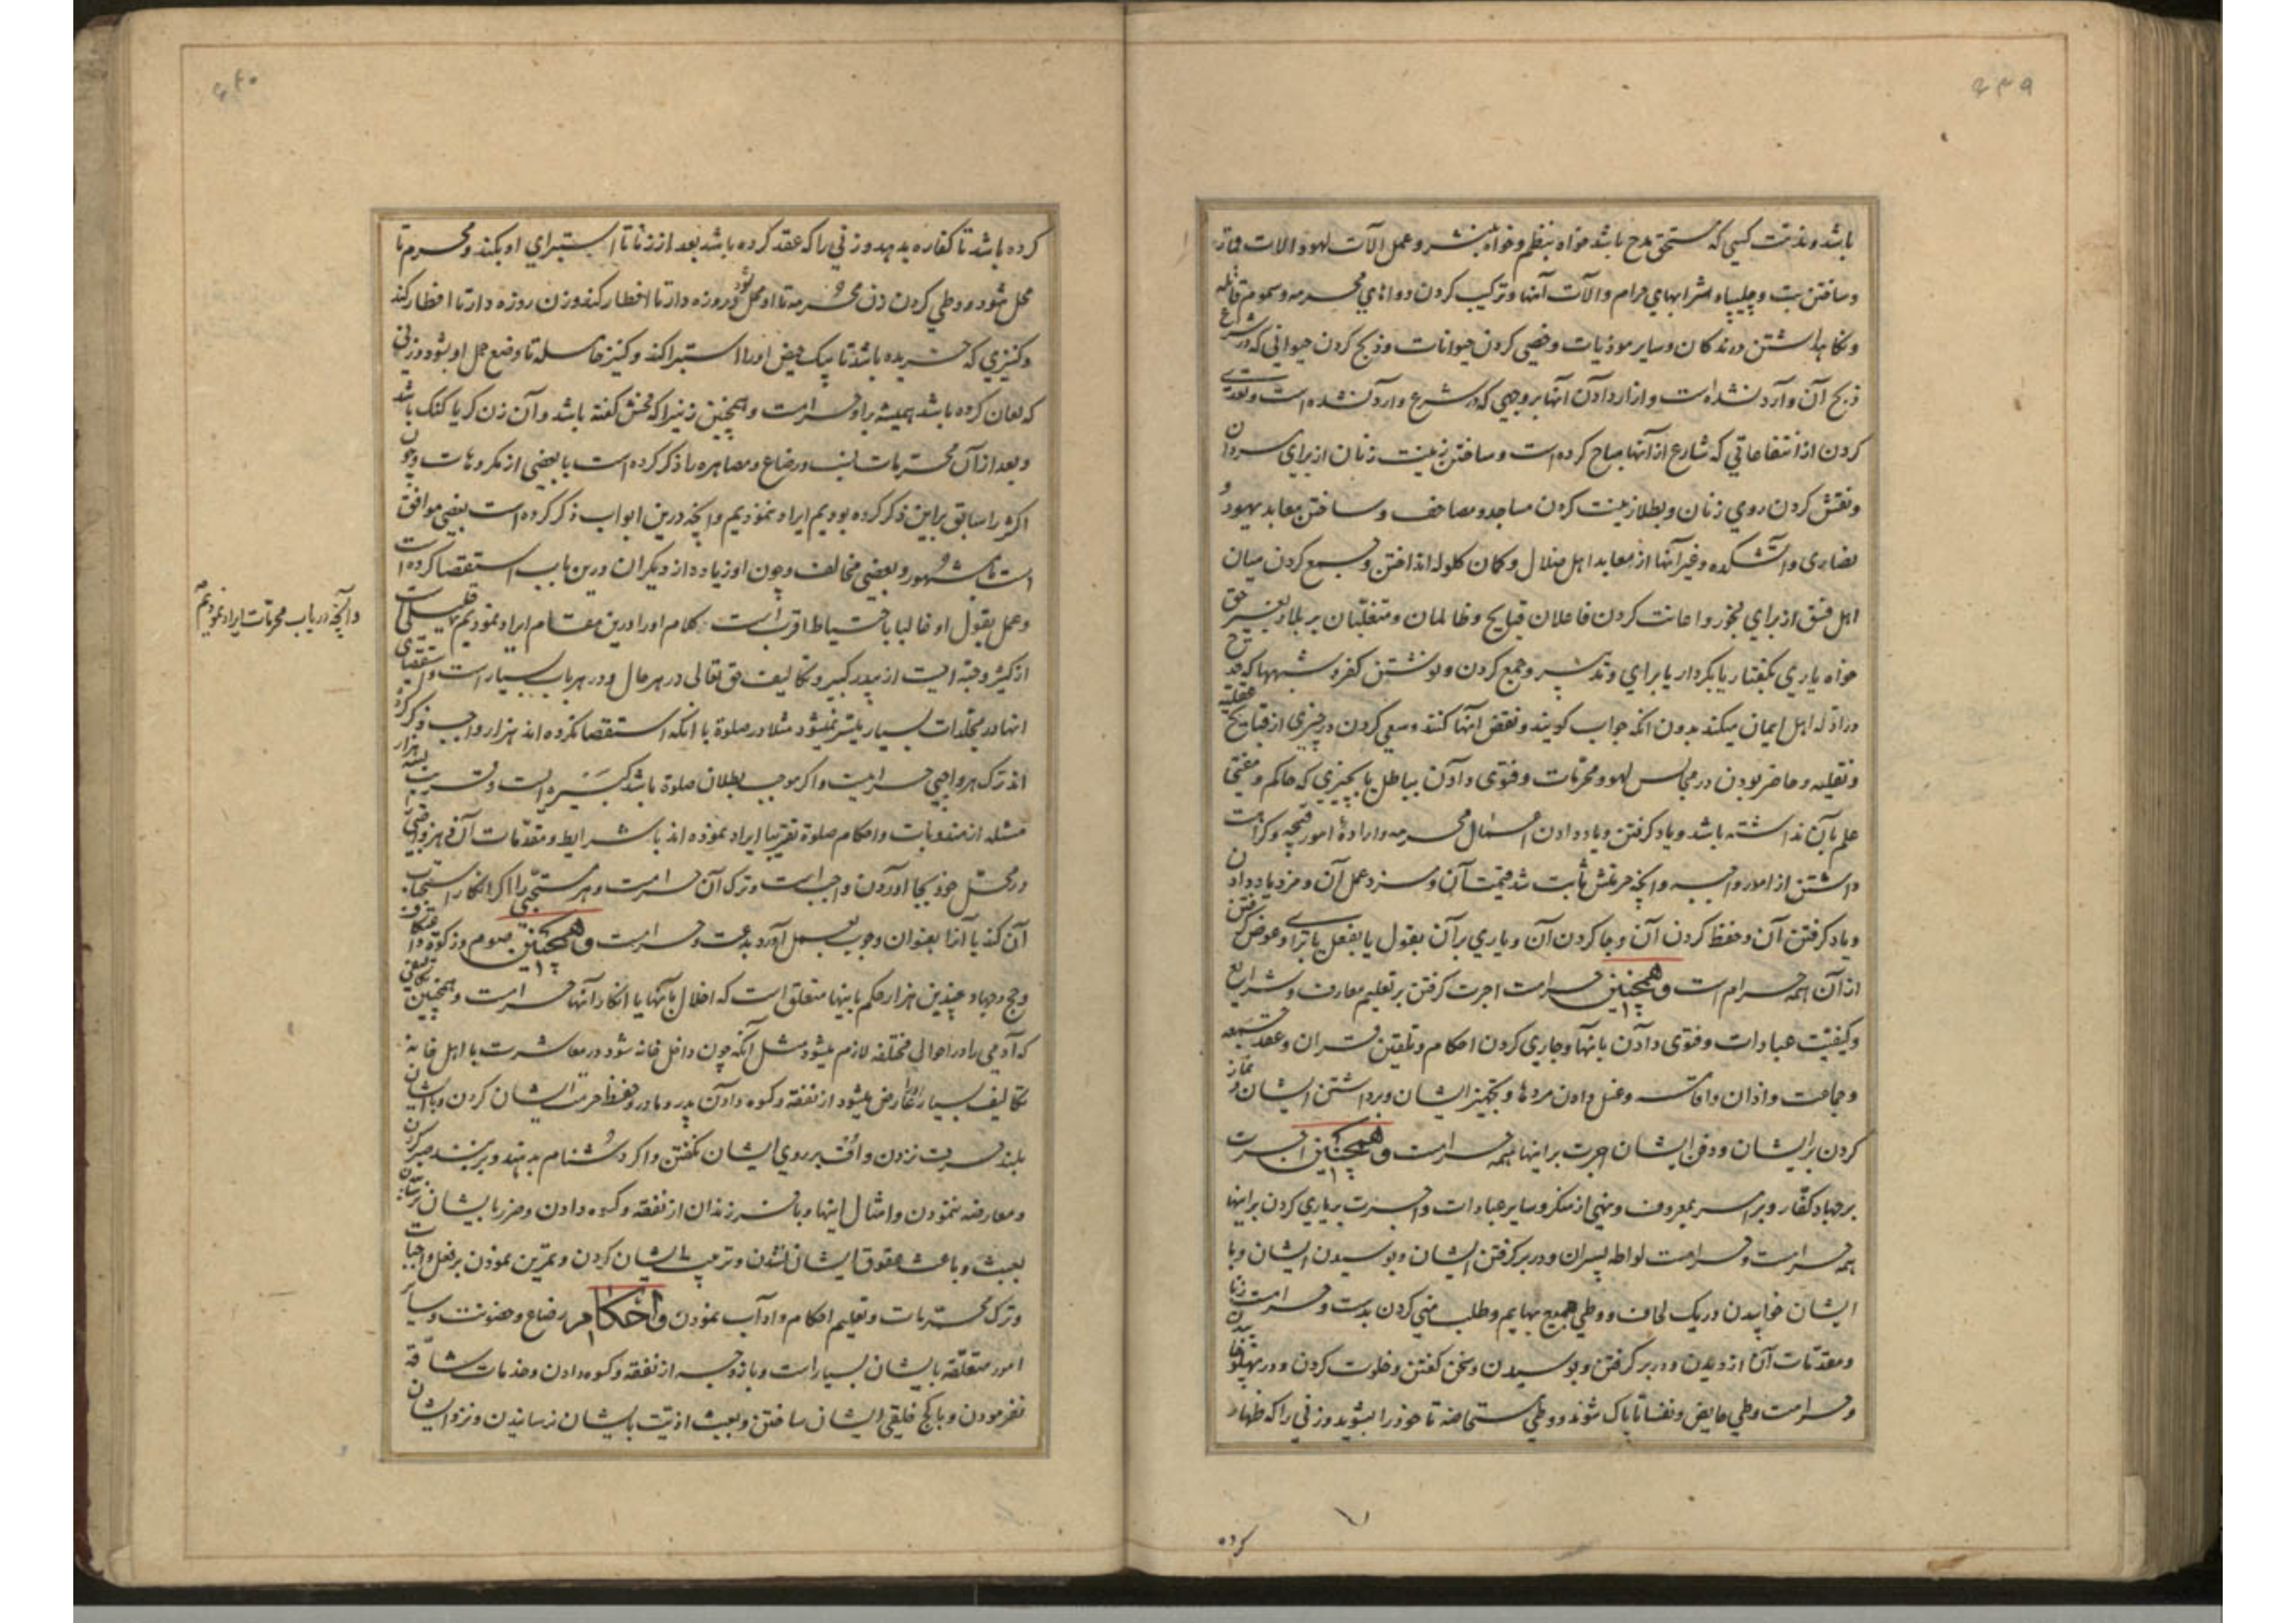 ۶۳۹
باشد و مذمت کسی که مستحق مدح باشد خواه بنظم و خواه بنثر و عمل آلات لهو و آلات قمار
و ساختن بت و چلیپا و شرابهای حرام و آلات آنها و ترکیب کردن دواهای محرمه و سموم قاتله
و نکاهداشتن درندکان و سایر موذیات و خصی کردن حیوانات و ذبح کردن حیوانی که در شرع
ذبح آن وارد نشده است و ازار دادن آنها بر وجهی که در شرع وارد نشده است و تعدی
کردن از انتفاعاتی که شارع از آنها مباح کرده است و ساختن زینت زنان از برای مردان
و نقش کردن روی زنان و بطلا زینت کردن مساجد و مصاحف و ساختن معابد یهود و
نصاری و آتشکده و غیر آنها از معابد اهل ضلال و کمان کلوله انداختن و جمع کردن میان
اهل فسق از برای فجور و اعانت کردن فاعلان قبایح و ظالمان و متغلبان بر بلاد بغیر حق
خواه یاری بکفتار یا بکردار یا برای و تدبیر و جمع کردن و نوشتن کفر و شبهها که قدح
در ادله اهل ایمان میکند بدون انکه جواب کویند و نقض آنها کنند و سعی کردن در چیزی از قبایح عقلیه
و نقلیه و حاضر بودن در مجالس لهو و محرمات و فتوی دادن بباطل یا بچیزی که حاکم و مفتی
علم بآن نداشته باشد و یاد کرفتن و یاد دادن اعمال محرمه و ارادهٔ امور قبیحه و کراهت
داشتن از امور واجبه و انچه حرمتش ثابت شد قیمت آن و مزد عمل آن و مزد یاد دادن
و یاد کرفتن آن و حفظ کردن آن و جا کردن آن و یاری بر آن بقول یا بفعل یا برای و عوض کرفتن
از آن همه حرام است و همچنین حرامت اجرت کرفتن بر تعلیم معارف و شرایع
و کیفیت عبادات و فتوی دادن بانها و جاری کردن احکام و تلقین قران و عقد جمعه
و جماعت و اذان و اقامه و غسل دادن مردها و تجهیز ایشان و برداشتن ایشان و نماز
کردن بر ایشان و دفن ایشان اجرت بر اینها همه حرامت و همچنین اجرت
بر جهاد کفار و بر امر بمعروف و نهی از منکر و سایر عبادات و اجرت بر یاری کردن بر اینها
همه حرامت و حرامت لواطه پسران و در بر کرفتن ایشان و بوسیدن ایشان و با
ایشان خوابیدن در یک لحاف و وطی جمیع بهایم و طلب منی کردن بدست و حرامت زنا
و مقدمات آن از دیدن و در بر کرفتن و بوسیدن و سخن کفتن و خلوت کردن و در پهلو خوابیدن
و حرامت وطی حایض و نفسا تا پاک شوند و وطی مستحاضه تا خود را بشوید و زنی را که ظهار
کرده
۶۴۰
کرده باشد تا کفاره بدهد و زنی را که عقد کرده باشد بعد از زنا تا استبرای او بکند و محرم تا
محل شود و وطی کردن زن محرمه تا او محل شود و روزه دار تا افطار کند و زن روزه دار تا افطار کند
و کنیزی که خریده باشد تا بیک حیض او را استبرا کند و کنیز حامله تا وضع حمل او بشود و زنی
که لعان کرده باشد همیشه بر او حرامت و همچنین زنیرا که فحش کفته باشد و آن زن کر یا کنک باشد
و بعد از آن محرمات نسب و رضاع و مصاهره را ذکر کرده است با بعضی از مکروهات و چون
اکثر را سابق بر این ذکر کرده بودیم ایراد ننمودیم و انچه درین ابواب ذکر کرده است بعضی موافق
است با مشهور و بعضی مخالف و چون او زیاده از دیکران درین باب استقصا کرده است
و عمل بقول او غالبا باحتیاط اقرب است کلام او را درین مقام ایراد نمودیم قلیلی است
وانچه در باب محرمات ایراد نمودیم
از کثیر و حبه ایست از بیدر کبیر و تکالیف حق تعالی در هر حال و در هر باب بسیار است و استقصای
انها در مجلدات بسیار میسر نمیشود مثلا در صلوة با انکه استقصا نکرده اند هزار واجب ذکر کرده
اند ترک هر واجبی حرامیت و اکر موجب بطلان صلوة باشد کبیره است و قریب بسه هزار
مسئله از مندوبات و احکام صلوة تقریبا ایراد نموده اند با شرایط و مقدمات آن و هر واجبی
در محل خود بجا اوردن واجبست و ترک آن حرامت و هر مستحبی را اکر انکار استحباب
آن کند یا آنرا بعنوان وجوب بعمل آورد بدعت و حرامت و همچنین صوم و زکوة و اعتکاف
و حج و جهاد و چندین هزار حکم باینها متعلق است که اخلال بآنها یا انکار آنها حرامت و همچنین تکالیفی
که آدمی را در احوال مختلفه لازم میشود مثل آنکه چون داخل خانه شود در معاشرت با اهل خانه
تکالیف بسیار عارض میشود از نفقه و کسوه دادن پدر و مادر و حفظ حرمت ایشان کردن و با ایشان
بلند حرف نزدن و اف بر روی ایشان نکفتن و اکر دشنام بدهند و بزنند صبر کردن
و معارضه ننمودن و امثال اینها و با فرزندان از نفقه و کسوه دادن و ضرر بایشان نرسانیدن
بعبث و باعث عقوق ایشان نشدن و تربیت ایشان کردن و تمرین نمودن بر فعل واجبات
و ترک محرمات و تعلیم احکام و آداب نمودن و احکام رضاع و حضونت و سایر
امور متعلقه بایشان بسیار است و با زوجه از نفقه و کسوه دادن و خدمات شاقه
نفرمودن و با کج خلقی ایشان ساختن و بعبث اذیت بایشان نرسانیدن و نزد ایشان